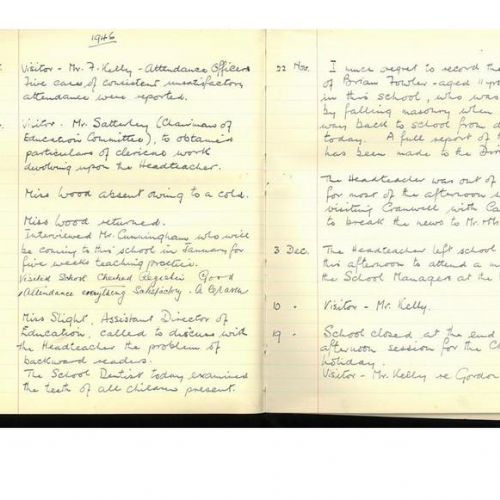 1946
Visitor - Mr. F. Kelly - Attendance Officer
Five cases of consistent unsatisfactory
attendance were reported.
Visitor. Mr. Satterley (Chairman of
Education Committee), to obtain
particulars of clerical work
devolving upon the Headteacher.
Miss Wood absent owing to a cold.
Miss Wood returned.
Interviewed Mr. Cunningham who will
be coming to this school in January for
five weeks teaching practice.
Visited School Checked Registers Good
Attendance everything Satisfactory.
Miss Slight, Assistant Director of
Education, called to discuss with
the Headteacher the problem of
backward readers.
The School Dentist today examined
the teeth of all children present.
22 Nov. I much regret to record the
of Brian Fowler - aged 11
in this school, who was
by falling masonry when
way back to school from
today. A full report of
has been made to the
The Headteacher was out of
for most of the afternoon
visiting Cranwell with
to break the news to Mr.
3 Dec. The Headteacher left school
this afternoon to attend a
the School Managers at the
10 Visitor - Mr. Kelly.
19 School closed at the end
afternoon session for the
holiday.
Visitor - Mr. Kelly re Gordon